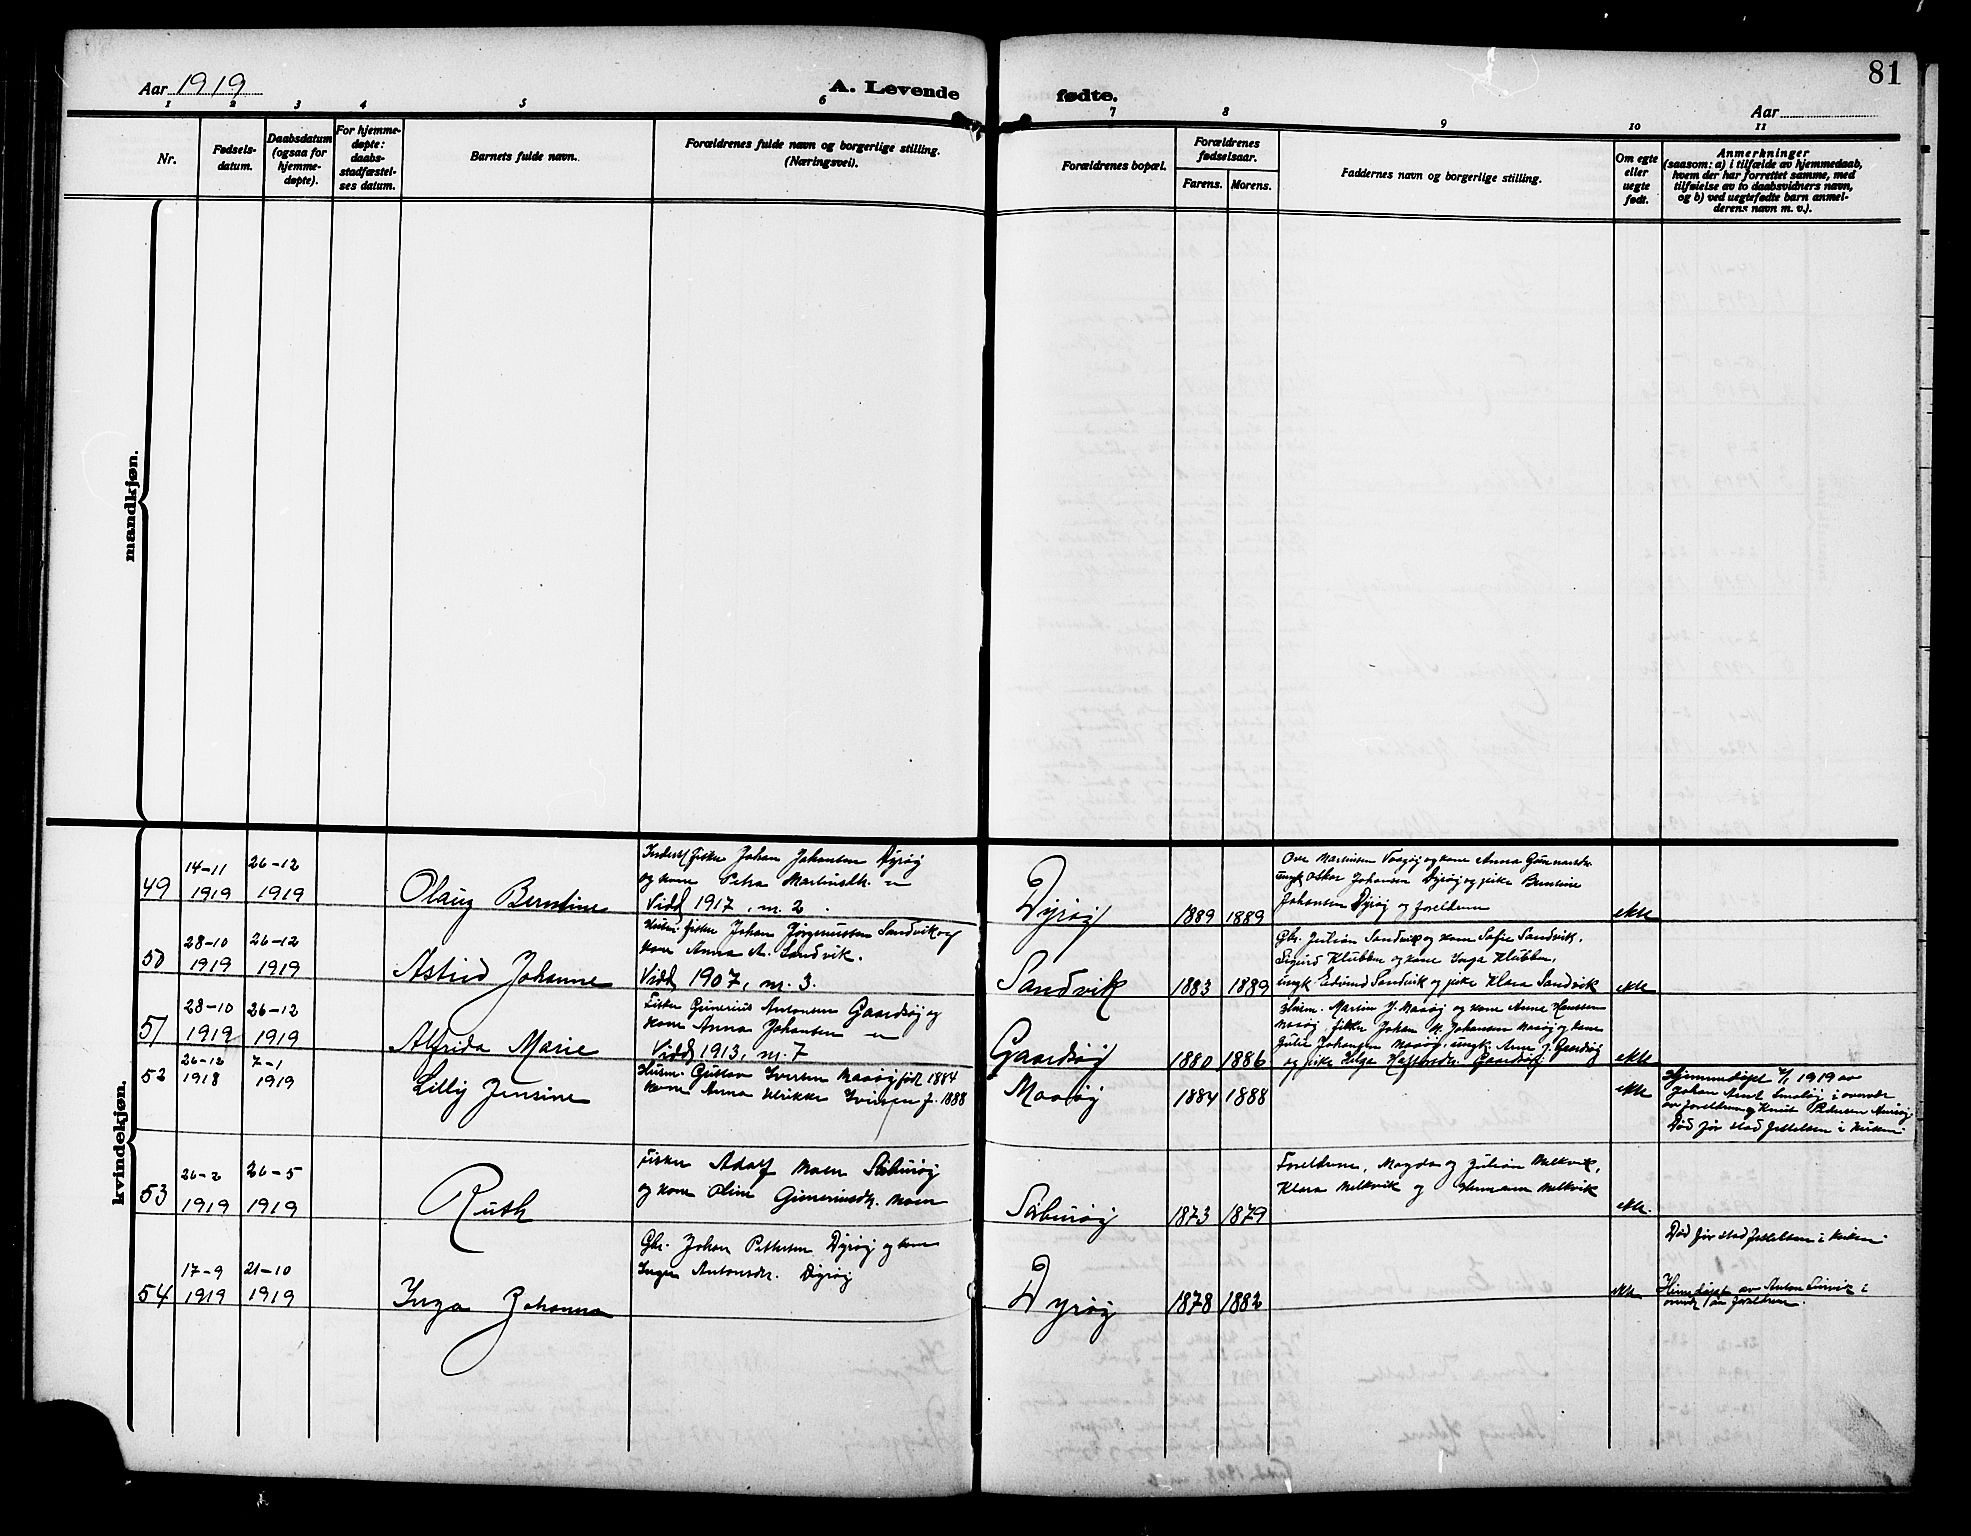 81
Aar 1919
A. Levende fødte.
Aar
1 2 3 4 5 6 7 8 9 10 11
Nr.
Fødsels-
datum.
Daabsdatum
(ogsaa for
hjemme-
døpte).
For hjemme-
døpte:
daabs-
stadfæstel-
ses datum.
Barnets fulde navn.
Forældrenes fulde navn og borgerlige stilling.
(Næringsvei).
Forældrenes bopæl.
Forældrenes
fødselsaar.
Farens. Morens.
Faddernes navn og borgerlige stilling.
Om egte
eller
uegte
født.
Anmerkninger
(saasom: a) i tilfælde av hjemmedaab,
hvem der har forrettet samme, med
tilføielse av to daabsvidners navn,
og b) ved uegtefødte barn anmel-
derens navn m. v.).
mandkjøn.
kvindekjøn.
49
14-11
1919
26-12
1919
Olaug Berntine
fisker Johan Johansen Dyrøy
og kone Petra
Vidd 1917, nr. 2.
Dyrøy
1889 1889
og kone Anna
ungk Oskar Johansen Dyrøy og pike Berntine
Johansen Dyrøy og foreldrene
ekte
50
28-10
1919
26-12
1919
Astrid Johanne
fisker Johan Sandvik og
kone Anna A. Sandvik.
Vidd 1907, nr. 3.
Sandvik
1883 1889
Gbr. Julian Sandvik og kone Sofie Sandvik,
Sigurd Klubben og kone Inga Klubben,
ungk Edvind Sandvik og pike Klara Sandvik
ekte
51
28-10
1919
26-12
1919
Alfrida Marie
Fisker Gunerius Antonsen Gaardsøy og
kone Anna Johansen
Vidd 1913, nr. 7
Gaardsøy
1880 1886
Martin J. Maasøy og kone Anne Hanssen
Maasøy, fisker Johan M. Johansen Maasøy og kone
Julie Johansen Maasøy, ungk. Arne J. Gaardsøy
og pike Helga Gaardsøy.
ekte
52
26-12
1918
7-1
1919
Lilly Jensine
Husm. Gustav Iversen Maasøy født 1884
kone Anna Ulrikke Iversen f. 1888
Maasøy
1884 1888
ekte
Hjemmedøpt 7/1 1919 av
Johan Arnt Smaløy i overvær
av foreldrene og Knut Pedersen
Død før stadfestelsen i kirken.
53
26-2
1919
26-5
1919
Ruth
Fisker Adolf Moen Sæburøy
og kone Oline Guneriusdtr. Moen
Sæburøy
1873 1879
Foreldrene, Magda og Julian Melkvik,
Klara Melkvik og Hermann Melkvik
ekte.
54
17-9
1919
21-10
1919
Inga Johanna
Gbr. Johan Pettersen Dyrøy og kone
Inger Antonsdtr. Dyrøy
Dyrøy
1878 1882
ekte
Død før stadfestelsen i kirken.
Hjemdøpt av Anton i
overvær av foreldrene.